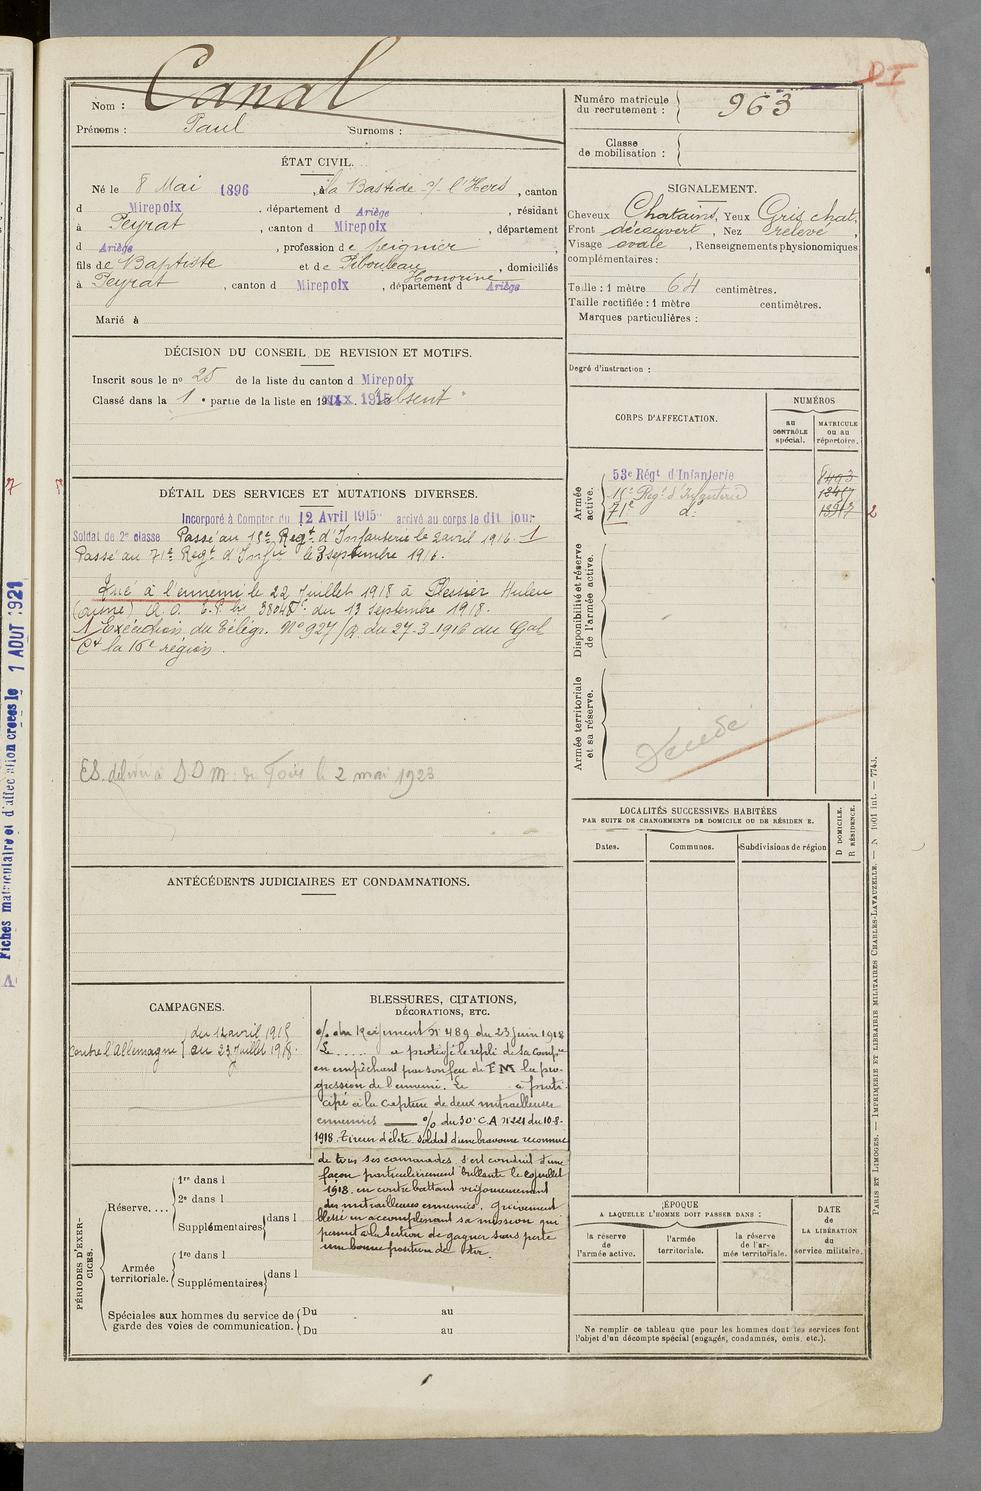 DI
Nom : Canal
Prénoms : Paul Surnoms :
Numéro matricule du recrutement : 963
Classe de mobilisation :
ÉTAT CIVIL.
Né le 8 Mai 1896, à La Bastide s/ l'Hers, canton
d Mirepoix, département d Ariège, résidant
à Peyrat, canton d Mirepoix, département
d Ariège, profession de peignier
fils de Baptiste et de Pibouleau Honorine, domiciliés
à Peyrat, canton d Mirepoix, département d Ariège
Marié à
SIGNALEMENT.
Cheveux Chatains, Yeux Gris chat,
Front découvert, Nez relevé,
Visage ovale, Renseignements physionomiques
complémentaires :
Taille : 1 mètre 64 centimètres.
Taille rectifiée : 1 mètre centimètres.
Marques particulières :
Degré d'instruction :
DÉCISION DU CONSEIL DE REVISION ET MOTIFS.
Inscrit sous le nº 25 de la liste du canton d Mirepoix
Classé dans la 1 e partie de la liste en 1915. "absent"
DÉTAIL DES SERVICES ET MUTATIONS DIVERSES.
Incorporé à Compter du 12 Avril 1915 arrivé au corps le dit jour
Soldat de 2e classe Passé au 15e Régt. d'Infanterie le 2 avril 1916. 1
Passé au 71e Regt. d'Infie le 3 septembre 1916.
Tué à l'ennemi le 22 Juillet 1918 à Plessier Huleu
(Aisne) A. O. 38048 du 13 Septembre 1918.
1 Exécution du télégr. Nº 927/R du 27-3-1916 du Gal
Ct la 16e région.
ES. délivré à DDM de Foix le 2 mai 1923
CORPS D'AFFECTATION.
NUMÉROS
au CONTRÔLE spécial.
MATRICULE ou au répertoire.
Armée active.
53e Régt d'Infanterie 8493
15e Regt d'Infanterie 12457
71e d: 13917 2
Disponibilité et réserve de l'armée active.
Armée territoriale et sa réserve.
Décédé
LOCALITÉS SUCCESSIVES HABITÉES
PAR SUITE DE CHANGEMENTS DE DOMICILE OU DE RÉSIDEN E.
Dates. Communes. Subdivisions de région
D DOMICILE. R RÉSIDENCE.
ANTÉCÉDENTS JUDICIAIRES ET CONDAMNATIONS.
CAMPAGNES.
Contre l'Allemagne
du 12 avril 1915
au 23 Juillet 1918.
BLESSURES, CITATIONS,
DÉCORATIONS, ETC.
% du Régiment Nº 489 du 23 juin 1918
Le ...... a protégé le repli de sa compie
en empêchant par son feu de FM la pro-
gression de l'ennemi. Le a parti
cipé à la capture de deux mitrailleuses
ennemies — % du 30e C.A nº 221 du 10-8-
1918. Tireur d'élite. soldat d'une bravoure reconnue
de tous ses camarades s'est conduit d'une
façon particulièrement brillante le 20 juillet
1918 en contrebattant vigoureusement
des mitrailleuses ennemies. Grièvement
blessé en accomplissant sa mission qui
permit à la Section de gagner sans perte
une bonne position de tir.
PÉRIODES D'EXERCICES.
Réserve....
1re dans l
2e dans l
Supplémentaires dans l
Armée territoriale.
1re dans l
Supplémentaires dans l
Spéciales aux hommes du service de garde des voies de communication.
Du au
Du au
ÉPOQUE
A LAQUELLE L'HOMME DOIT PASSER DANS :
la réserve de l'armée active.
l'armée territoriale.
la réserve de l'armée territoriale.
DATE de LA LIBÉRATION du service militaire.
Ne remplir ce tableau que pour les hommes dont les services font
l'objet d'un décompte spécial (engagés, condamnés, omis, etc.).
PARIS ET LIMOGES. — IMPRIMERIE ET LIBRAIRIE MILITAIRES CHARLES-LAVAUZELLE. — N 1001 int. — 7743.
Fiches matriculaire et d'affectation créées le 1 AOUT 1921